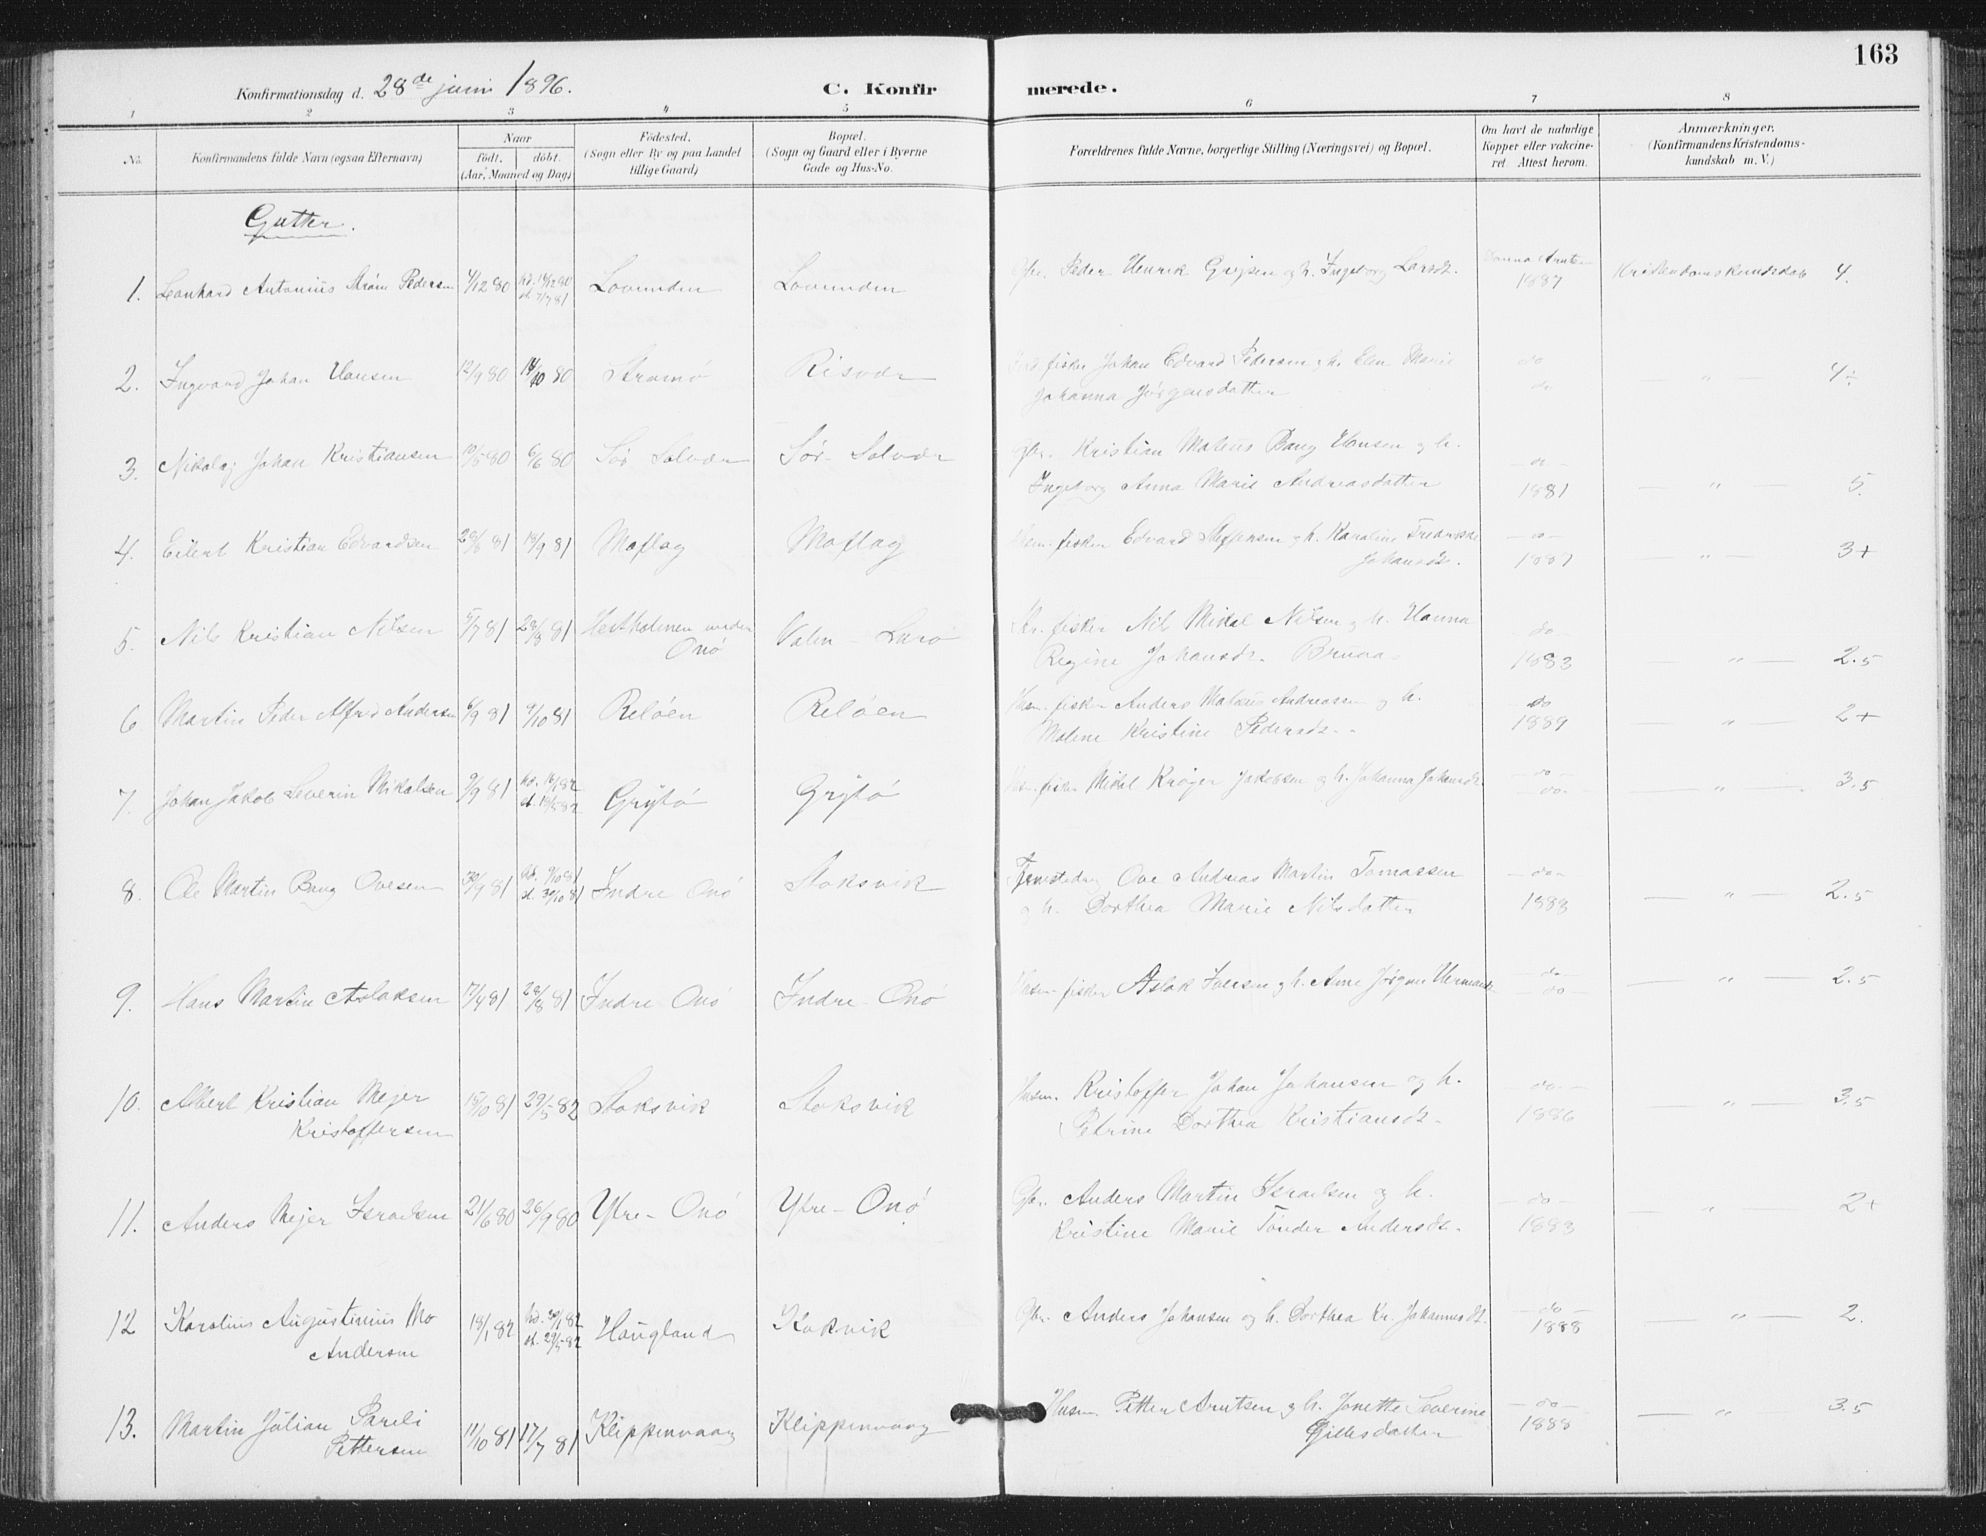 163
Konfirmationsdag d. 28de juni 1896. C. Konfirmerede.
1 2 3 4 5 6 7 8
No. Konfirmandens fulde Navn (ogsaa Efternavn) Naar födt. döbt. (Aar, Maaned og Dag) Födested. (Sogn eller By og paa Landet tillige Gaard) Bopæl. (Sogn og Gaard eller i Byerne Gade og Hus-No. Forældrenes fulde Navne, borgerlige Stilling (Næringsvei) og Bopæl. Om havt de naturlige Kopper eller vakcineret. Attest herom. Anmærkninger. (Konfirmandens Kristendomskundskab m. V.)
Gutter.
1. Leonhard Antonius Strøm Pedersen 4/12 80 hd. 18/12 80 Lovunden Lovunden Gbr. Peder Henrik Grejsen og h. Ingeborg Larsdt. 1887 Kristendomskundskab 4.
d. 7/7 81
2. Ingvard Johan Hansen 12/9 80 14/10 80 Strømø Risvær fisker Johan Edvard Pedersen og h. Elen Marie do
Johanna Jørgensdatter do — " — 4÷
3. Nikolaj Johan Kristiansen 10/5 80 6/6 80 Sør Solvær Sør-Solvær Gbr. Kristian Mateus Bang Hansen og h. — do —
Ingeborg Anna Marie Andreasdatter 1881 — " — 5.
4. Eilert Kristian Edvardsen 18/9 81 Moflag Moflag Husm. fisker Edvard Steffensen og h. Karoline Fredrikke — do —
Johansdt. 1887 — " — 3+
5. Nils Kristian Nilsen 5/7 81 28/8 81 Hestholmen under Valen - Lurø fisker Nils Mikal Nilsen og h. Hanna do
Onø Regine Johansdt. 1883 — " — 2.5
6 Martin Peder Alfred Andersen 6/9 81 9/10 81 Reløen Reløen Husm. fisker Anders Mateus Andreassen og h. do
Malene Kristine Pedersdt. 1889 — " — 2+
7. Johan Jakob Severin Mikalsen 9/9 81 Grytø Grytø Husm. fisker Mikal Krøger Jakobsen og h. Johanna Johansdt. — do — — " — 3.5
— do —
8. Ole Martin Bang Ovesen 30/9 81 hd. 9/10 81 Indre Onø Stoksvik Tjenestedrg Ove Andreas Martin Tomassen — do —
d. 30/10 81 og h. Dorthea Marie Nilsdatter 1888 — " — 2.5
9. Hans Martin Aslaksen 17/4 81 28/8 81 Indre Onø Indre-Onø Husm. fisker Aslak Iversen og h. Anne Jørgine — do — — " — 2.5
— do —
10. Albert Kristian Mejer 15/10 81 29/5 82 Stoksvik Stoksvik Husm. Kristoffer Johan Johansen og h. — do —
Kristoffersen Petrine Dorthea Kristiansdt. 1886 — " — 3.5
11. Anders Mejer Israelsen 21/6 80 26/9 80 Ytre-Onø Ytre-Onø Gbr. Anders Martin Israelsen og h. — do —
Kristine Marie Tønder Andersdt. 1883 — " — 2+
12 Karolius Augustinius Mo 18/1 82 hd. 30/1 82 Haugland Kokvik Gbr. Anders Johansen og h. Dorthea Kr. Johannesdt. — do — — " — 2.
Andersen d. 29/5 82 1888
13. Martin Julian Pareli 11/10 81 17/7 81 Klippenvaag Klippenvaag Husm. Petter Arntsen og h. Jonette Severine — do — — " — 3.5
Pettersen Gillesdatter 1888